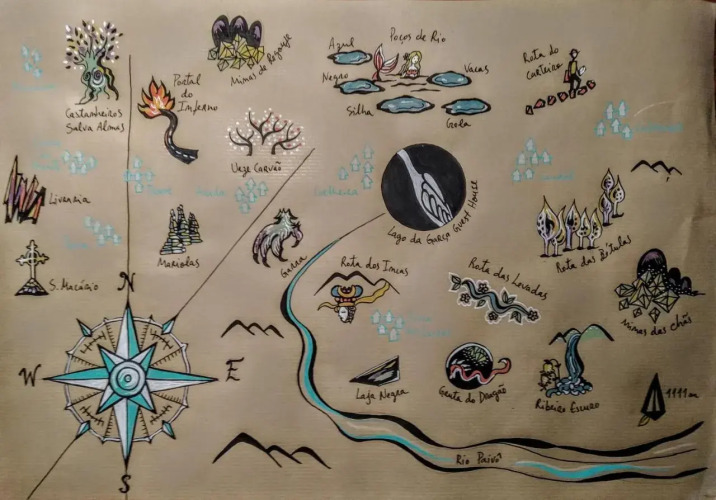 Castanheiros
Salva Almas
Portal
do
Inferno
Minas de Regoufe
Azul
Poços de Rio
Negro
Vacas
Silha
Gola
Rota do
Carteiro
Urze Carvão
Livraria
Mariolas
Garra
Lago da Garça Guest House
S. Macário
Rota dos Incas
Rota das Levadas
Rota das Bétulas
Minas das Chãs
N
W
E
S
Laje Negra
Gruta do Dragão
Ribeiro Escuro
1111m
Rio Paivô